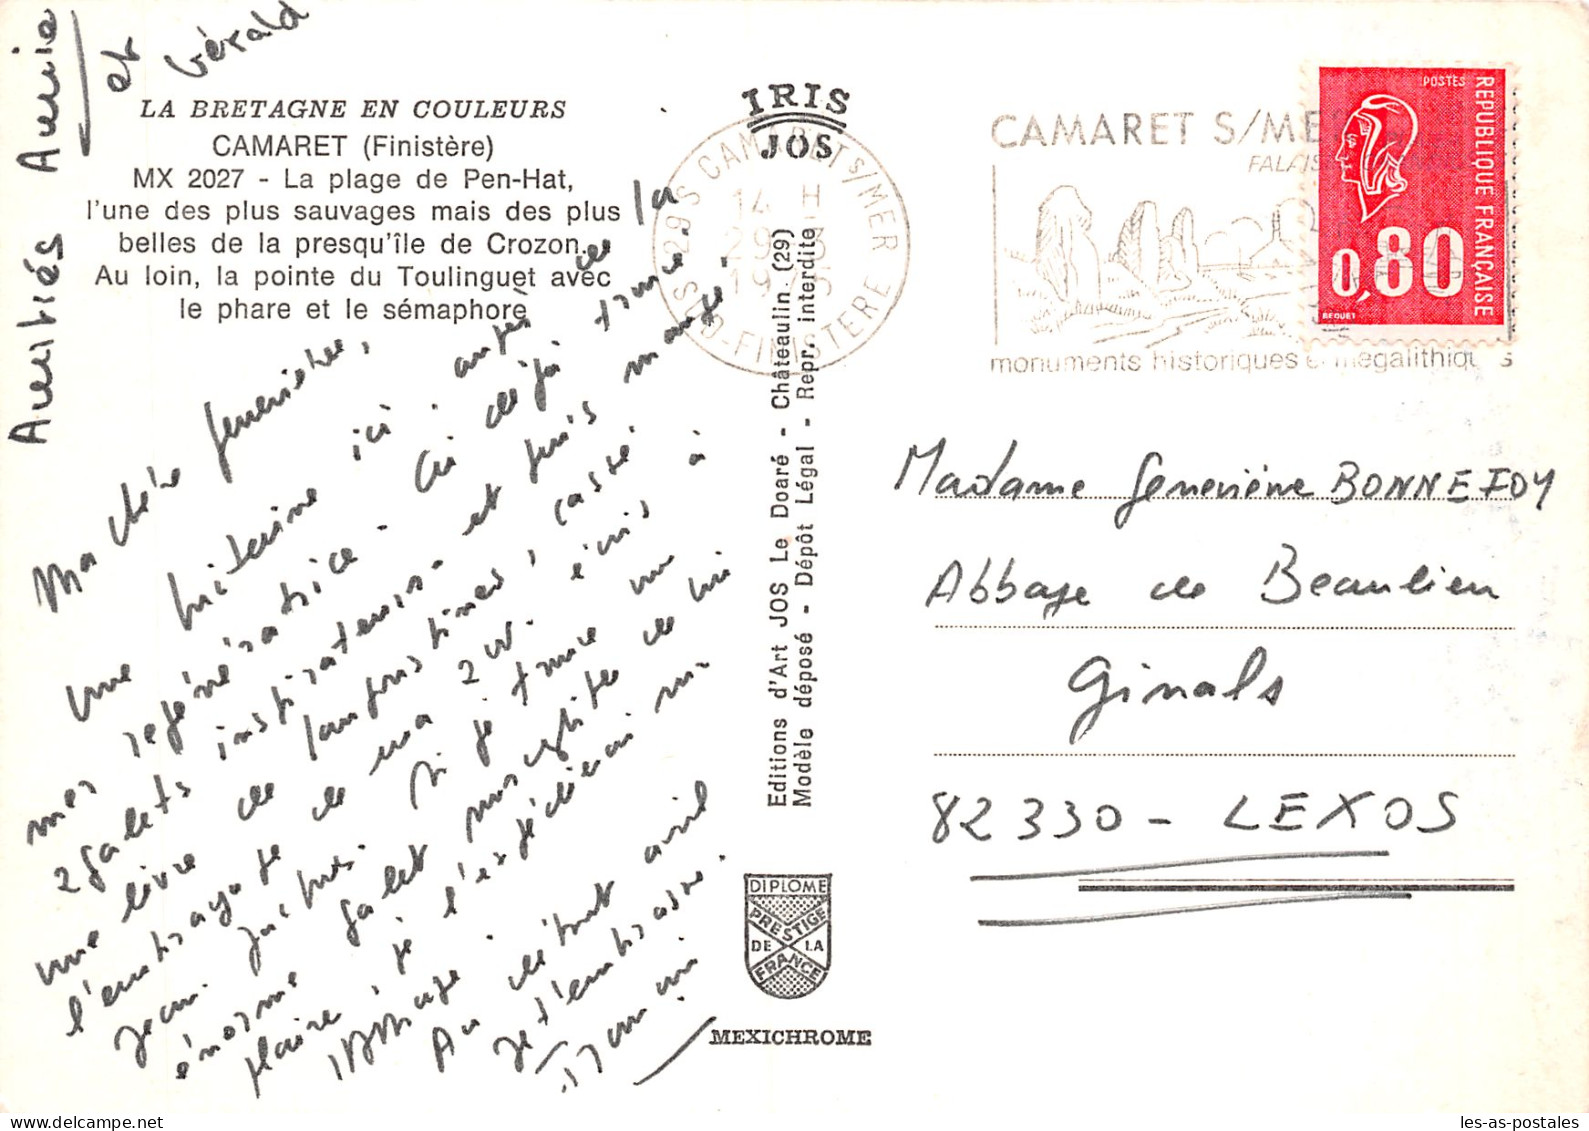 Amitiés Annie
et
Gérald
LA BRETAGNE EN COULEURS
CAMARET (Finistère)
MX 2027 - La plage de Pen-Hat,
l'une des plus sauvages mais des plus
belles de la presqu'île de Crozon.
Au loin, la pointe du Toulinguet avec
le phare et le sémaphore
Ma chère Geneviève,
Une huitaine ici
régénératrice - Ai déjà trouvé
mes 2 galets inspirateurs - et puis mangé
une livre de langoustines, cassé
l'embrayage de ma 2 CV. écris à
Jean-Jacques. Si je trouve un
énorme galet susceptible de lui
plaire, je l'expédierai
Abbaye. Au début avril
Je t'embrasse.
IRIS
JOS
29 S CAMARET S/MER
14 H
29
1975
SUD-FINISTERE
Editions d'Art JOS Le Doaré - Châteaulin. (29)
Modèle déposé - Dépôt Légal - Repr. interdite
DIPLOME
PRESTIGE
DE LA
FRANCE
MEXICHROME
CAMARET S/MER
monuments historiques et mégalithiques
POSTES
REPUBLIQUE FRANÇAISE
0,80
BEQUET
Madame Geneviève BONNEFOY
Abbaye de Beaulieu
Ginals
82330 - LEXOS
les-as-postales